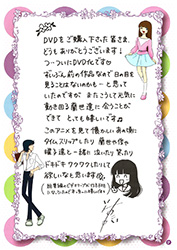 DVDをご購入下さった皆さま、
どうもありがとうございます!
つ・ついにDVD化ですね
ずいぶん前の作品なので日の目を
見ることはないのかも…と思って
いたのですが またこうして元気に
動き回る蘭世達に会うことが
できて とっても嬉しいです
このアニメを見て懐かしいあの頃に
タイムスリップしたり 蘭世や俊や
曜子達と一緒に泣いたり笑ったり
ドキドキ ワクワクしたりして
欲しいなと思います